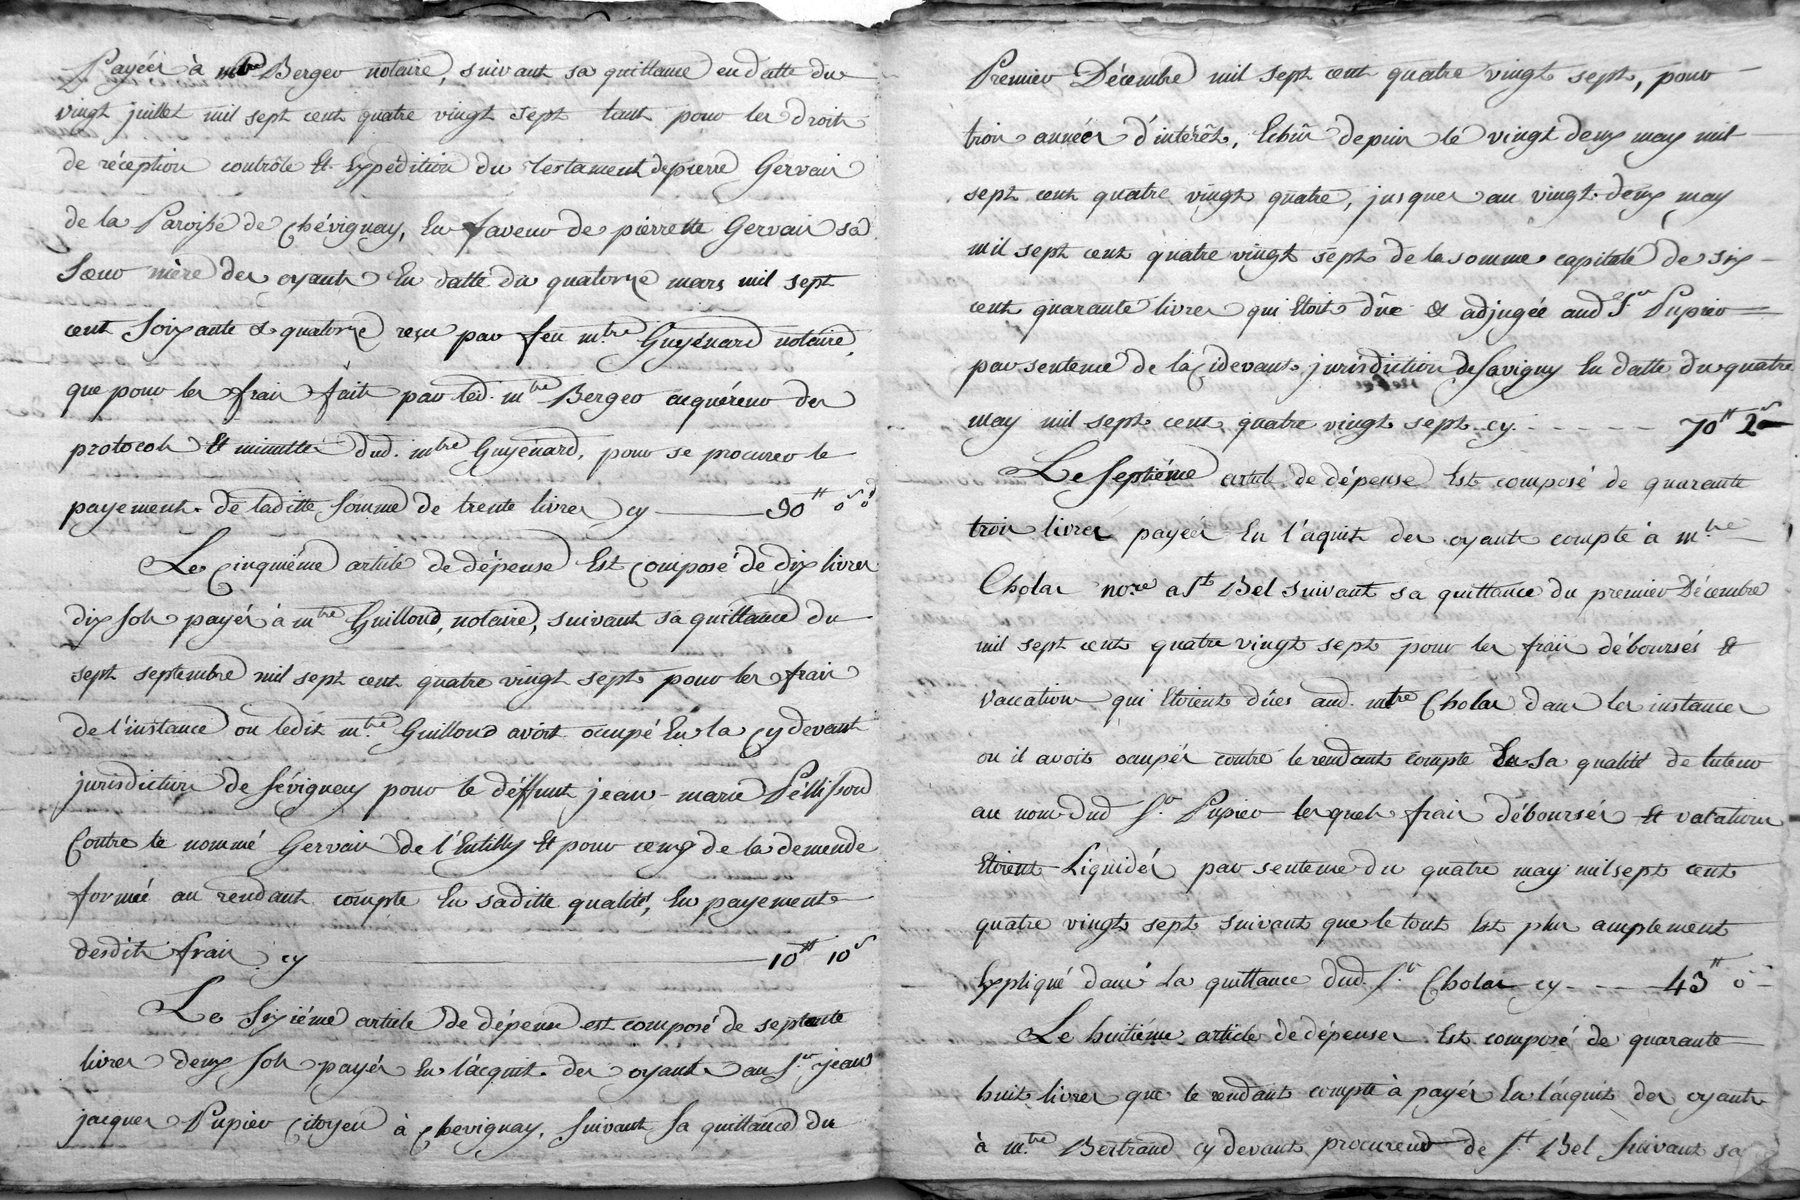 Payées à mtre Berger notaire, suivant sa quittance en datte du
vingt juillet mil sept cent quatre vingt sept tant pour les droits
de réception contrôle Et Expédition du testament de pierre Gervais
de la Paroisse de Chévignay, En faveur de pierrette Gervais sa
Sœur mère des oyants En datte du quatorze mars mil sept
cent Soixante & quatorze reçu par feu mtre Guyénard notaire,
que pour les frais faits par led. mtre Berger acquéreur des
protocols Et minuttes dud. mtre Guyénard, pour se procurer le
payement de laditte Somme de trente livres cy 30tt 0s 0d
Le Cinquiéme article de dépense Est Composé de dix livres
dix sols payés à mtre Guilloud, notaire, suivant sa quittance du
sept septembre mil sept cent quatre vingt sept pour les frais
de l'instance ou ledit mtre Guilloud avoit occupé En la cy devant
jurisdiction de Sévigney pour le déffunt jean-marie Péllisson
Contre le nommé Gervais de l'Entilly Et pour ceux de la demende
formée au rendant compte En saditte qualité, En payement
desdits frais cy 10tt 10s
Le Sixiéme article de dépense est composé de septante
livres deux sols payés En l'acquit des oyants au Sr jean
jacques Pupier Citoyen à Chevignay, Suivant Sa quittance du
Premier Décembre mil sept cent quatre vingt sept, pour
trois années d'intérêts, Echûs depuis le vingt deux may mil
sept cent quatre vingt quatre, jusques au vingt-deux may
mil sept cent quatre vingt sept de la somme capitale de six
cent quarante livres qui Etoit dûe & adjugée aud Sr Pupier
par sentence de la Cidevant jurisdiction de Savigny En datte du quatre
may mil sept cent quatre vingt sept cy 70tt 2s
Le Septiéme article de dépense Est composé de quarante
trois livres payées En l'aquit des oyants compte à mtre
Cholas nore a St Bel suivant sa quittance du premier Décembre
mil sept cent quatre vingt sept pour les frais déboursés Et
vaccations qui Etoient dûes aud. mtre Cholas dans les instances
ou il avoit occupés contre le rendant compte En Sa qualité de tuteur
au nom dud Sr. Pupier lesquels frais déboursés Et vacations
Etoient Liquidés par sentence du quatre may mil sept cent
quatre vingt sept suivant que le tout Est plus amplement
Expliqué dans La quittance dud. Sr. Cholas cy 43tt 0
Le huitiéme article de dépenses Est composé de quarante
huit livres que le rendant compte à payés En l'acquit des oyants
à mtre Bertrand cy devant procureur de St. Bel Suivant sa